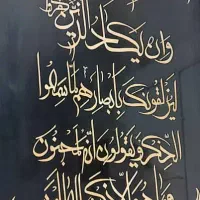 وان يكاد الذين كفروا
ليزلقونك بابصارهم لما سمعوا
الذكر ويقولون انه لمجنون
وما هو الا ذكر للعالمين